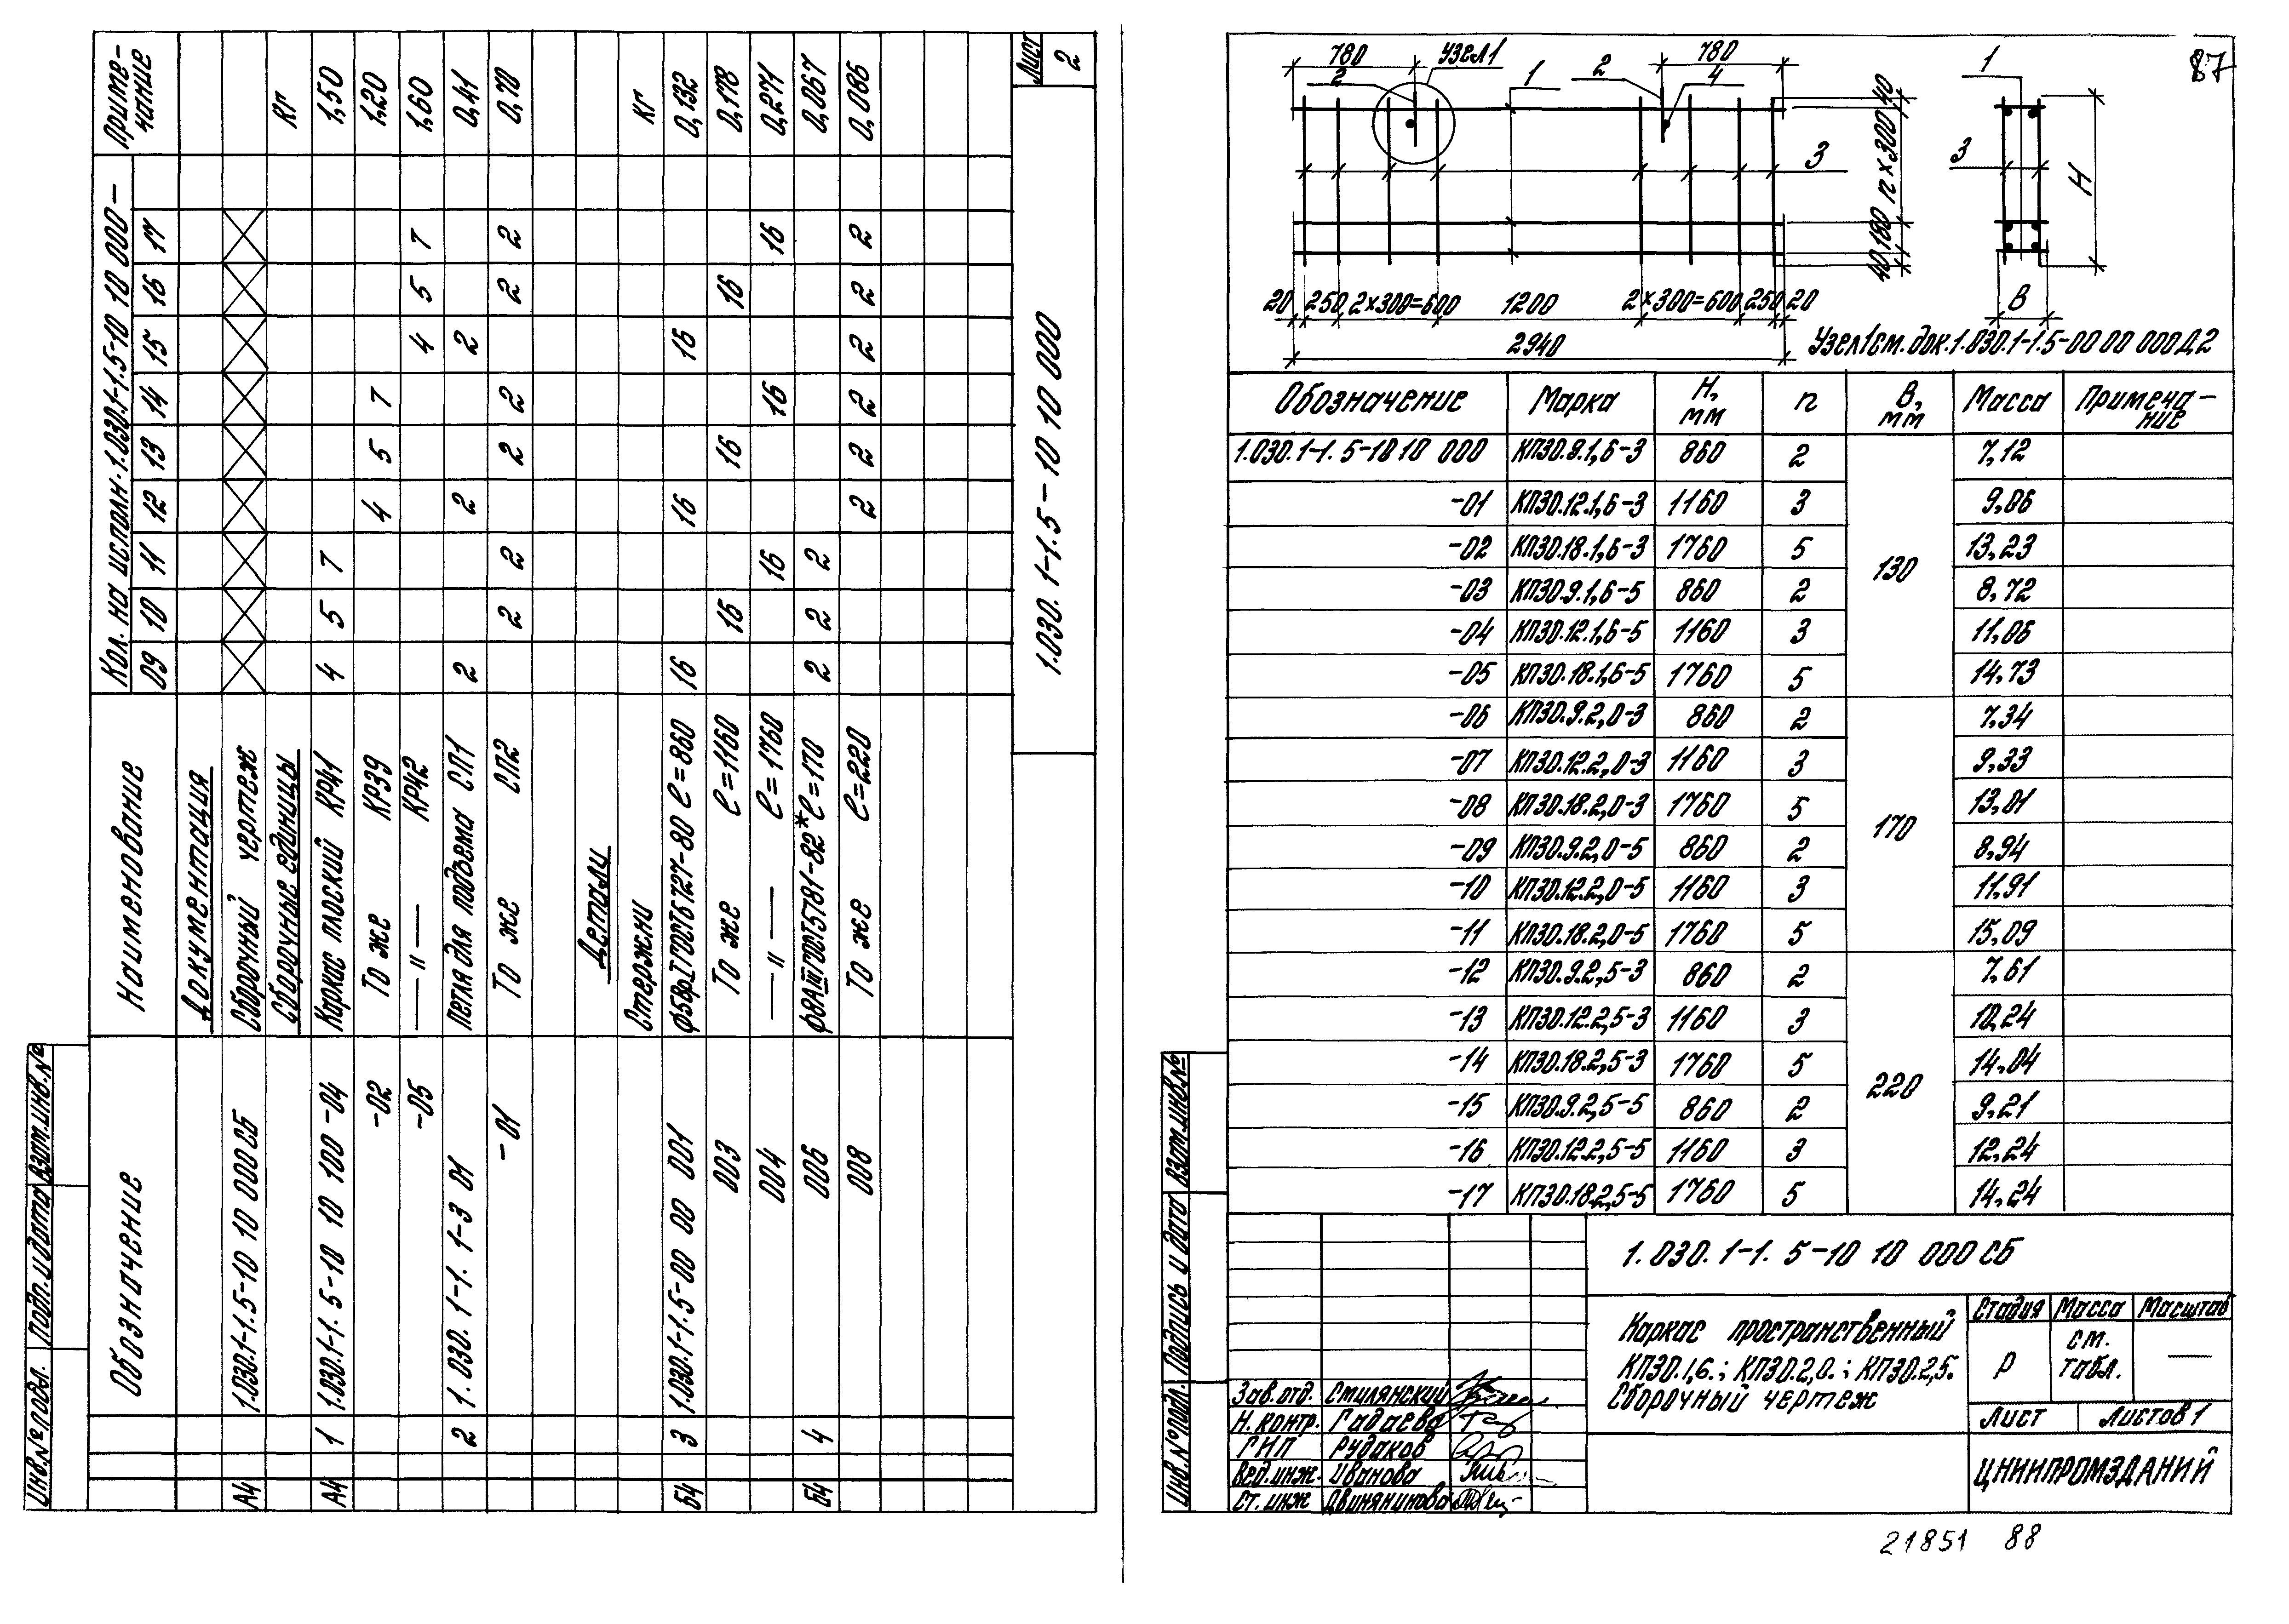 Обозначение Наименование Кол. на исполн. 1.030.1-1.5-10 10 000 – Приме-чание
09 10 11 12 13 14 15 16 17
Документация
А4 1.030.1-1.5-10 10 000 СБ Сборочный чертеж
Сборочные единицы кг
А4 1 1.030.1-1.5-10 10 100 -04 Каркас плоский КР41 4 5 7 1,50
-02 То же КР39 4 5 7 1,20
-05 — " — КР42 4 5 7 1,60
2 1.030.1-1.1-3 01 Петля для подъема СП1 2 2 2 0,41
-01 То же СП2 2 2 2 2 2 2 0,70
Детали
Стержни кг
Б4 3 1.030.1-1.5-00 00 001 ф5ВрI ГОСТ6727-80 ℓ=860 16 16 16 0,132
003 То же ℓ=1160 16 16 16 0,178
004 — " — ℓ=1760 16 16 16 0,271
Б4 4 006 ф8АIII ГОСТ5781-82* ℓ=170 2 2 2 0,067
008 То же ℓ=220 2 2 2 2 2 2 0,086
1.030.1-1.5-10 10 000
Лист
2
Инв.№подл. Подп. и дата Взам.инв.№
87
780 Узел1 780
2 1 2 4 1
3 3
40 180 n×300 40
H
B
20 250 2×300=600 1200 2×300=600 250 20
2940
Узел1см.док.1.030.1-1.5-00 00 000Д2
Обозначение Марка Н, мм n В, мм Масса Примеча-ние
1.030.1-1.5-10 10 000 КП30.9.1,6-3 860 2 130 7,12
-01 КП30.12.1,6-3 1160 3 9,06
-02 КП30.18.1,6-3 1760 5 13,23
-03 КП30.9.1,6-5 860 2 8,72
-04 КП30.12.1,6-5 1160 3 11,06
-05 КП30.18.1,6-5 1760 5 14,73
-06 КП30.9.2,0-3 860 2 170 7,34
-07 КП30.12.2,0-3 1160 3 9,33
-08 КП30.18.2,0-3 1760 5 13,01
-09 КП30.9.2,0-5 860 2 8,94
-10 КП30.12.2,0-5 1160 3 11,91
-11 КП30.18.2,0-5 1760 5 15,09
-12 КП30.9.2,5-3 860 2 220 7,61
-13 КП30.12.2,5-3 1160 3 10,24
-14 КП30.18.2,5-3 1760 5 14,04
-15 КП30.9.2,5-5 860 2 9,21
-16 КП30.12.2,5-5 1160 3 12,24
-17 КП30.18.2,5-5 1760 5 14,24
1.030.1-1.5-10 10 000 СБ
Каркас пространственный
КП30.1,6.; КП30.2,0.; КП30.2,5.
Сборочный чертеж
Стадия Масса Масштаб
Р см. табл. —
Лист Листов 1
ЦНИИПРОМЗДАНИЙ
Зав.отд. Смилянский
Н.контр. Гадаева
ГИП Рудаков
Вед.инж. Иванова
Ст. инж Двинянинова
Инв.№подл. Подпись и дата Взам.инв.№
21851 88